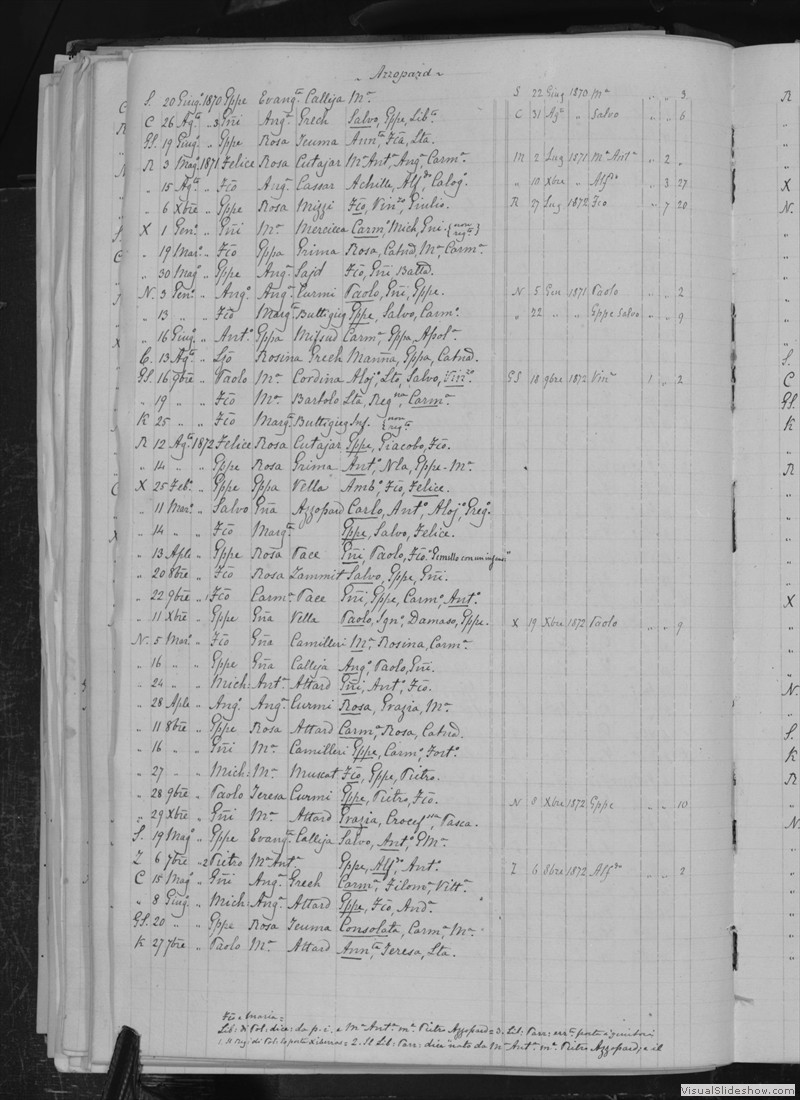 Azzopard
S. 20 Giug.º 1870 Gppe Evang.ta Calleja M.a S 22 Giug 1870 M.a " " 3
C 26 Ag.to " Gñi Ang.a Grech Salvo, Gppe, Lib.ta C 31 Ag.to " Salvo " " 6
GS. 19 Giug.º " Gppe Rosa Teuma Ann.ta Fca, Lta.
R 3 Mag.º 1871 Felice Rosa Cutajar M.a Ant.a Ang.a Carm.a M 2 Lug 1871 M.a Ant.a " 2 "
" 15 Ag.to " Fco Ang.a Cassar Achille, Alf.do Calog.o " 10 Xbre " Alf.do " 3 27
" 6 Xbre " Gppe Rosa Mizzi Fco, Vin.zo Giulio. R 27 Lug 1872 Fco " 7 20
X 1 Gen.º " Gñi M.a Mercieca Carm.o Mich, Gñi. {non reg.º}
" 19 Mar.º " Fco Gppa Grima Rosa, Catnd, M.a Carm.a
" 30 Mag.º " Gppe Ang.a Sajd Fco, Gñi Battd.
N. 3 Gen.º " Ang.º Ang.a Curmi Paolo, Gñi, Gppe. N 5 Gen 1871 Paolo " " 2
" 13 " " Fco Marg.ta Buttigieg Gppe, Salvo, Carm.o " 22 " " Gppe Salvo " " 9
" 16 Giug.º " Ant.º Gppa Mifsud Carm.a, Gppa, Apol.a
C. 13 Ag.to " Ljo Rosina Grech Manna, Gppa, Catnd.
GS. 16 9bre " Paolo M.a Cordina Aloj.o Lto, Salvo, Vin.zo GS 18 9bre 1872 Vin.zo 1 " 2
" 19 " " Fco M.a Bartolo Lta, Reg.na, Carm.a
K 25 " " Fco Marg.ta Buttigieg Inf. {non reg.ta
R 12 Ag.to 1872 Felice Rosa Cutajar Gppe, Giacobo, Fco.
" 14 " " Gppe Rosa Grima Ant.a, Nla, Gppe-M.a
X 25 Feb.º " Gppe Gppa Vella Amb.o, Fco, Felice.
" 11 Mar.º " Salvo Gña Azzopard Carlo, Ant.o, Aloj.o, Greg.o
" 14 " " Fco Marg.ta Gppe, Salvo, Felice.
" 13 Aple " Gppe Rosa Pace Gñi, Paolo, Fco.
" 20 8bre " Fco Rosa Zammit Salvo, Gppe, Gñi.
" 22 9bre " 1 Fco Carm.a Pace Gñi, Gppe, Carm.o, Ant.o
" 11 Xbre " Gppe Gña Vella Paolo, Ign.o, Damaso, Gppe. X 19 Xbre 1872 Paolo " " 9
N. 5 Mar.º " Fco Gña Camilleri M.a, Rosina, Carm.a
" 16 " " Gppe Gña Calleja Ang.o, Paolo, Gñi.
" 24 " " Mich: Ant.a Attard Gñi, Ant.o, Fco.
" 28 Aple " Ang.º Ang.a Curmi Rosa, Grazia, M.a
" 11 8bre " Gppe Rosa Attard Carm.a, Rosa, Catnd.
" 16 " " Gñi M.a Camilleri Gppe, Carm.o, Fort.o
" 27 " " Mich: M.a Muscat Fco, Gppe, Pietro.
" 28 9bre " Paolo Teresa Curmi Gppe, Pietro, Fco. N 8 Xbre 1872 Gppe " " 10
" 29 Xbre " Gñi M.a Attard Grazia, Crocef.ssa Pasca.
S. 19 Mag.º " Gppe Evang.ta Calleja Salvo, Ant.o, GM.a
Z 6 7bre " 2 Pietro M.a Ant.a Gppe, Alf.do, Ant.o Z 6 8bre 1872 Alf.do " " 2
C 15 Mag.º " Gñi Ang.a Grech Carm.a, Filom.a, Vitt.a
" 8 Giug.º " Mich: Ang.a Attard Gppe, Fco, And.a
GS. 20 " " Gppe Rosa Teuma Consolata, Carm.a, M.a
K 27 7bre " Paolo M.a Attard Ann.ta, Teresa, Lta.
Fco e Maria=
Lib: di Pol: dice: da p. i. e M.a Ant.a m.a Pietro Azzopard= 3. Lib: Parr:
VisualSlideshow.com